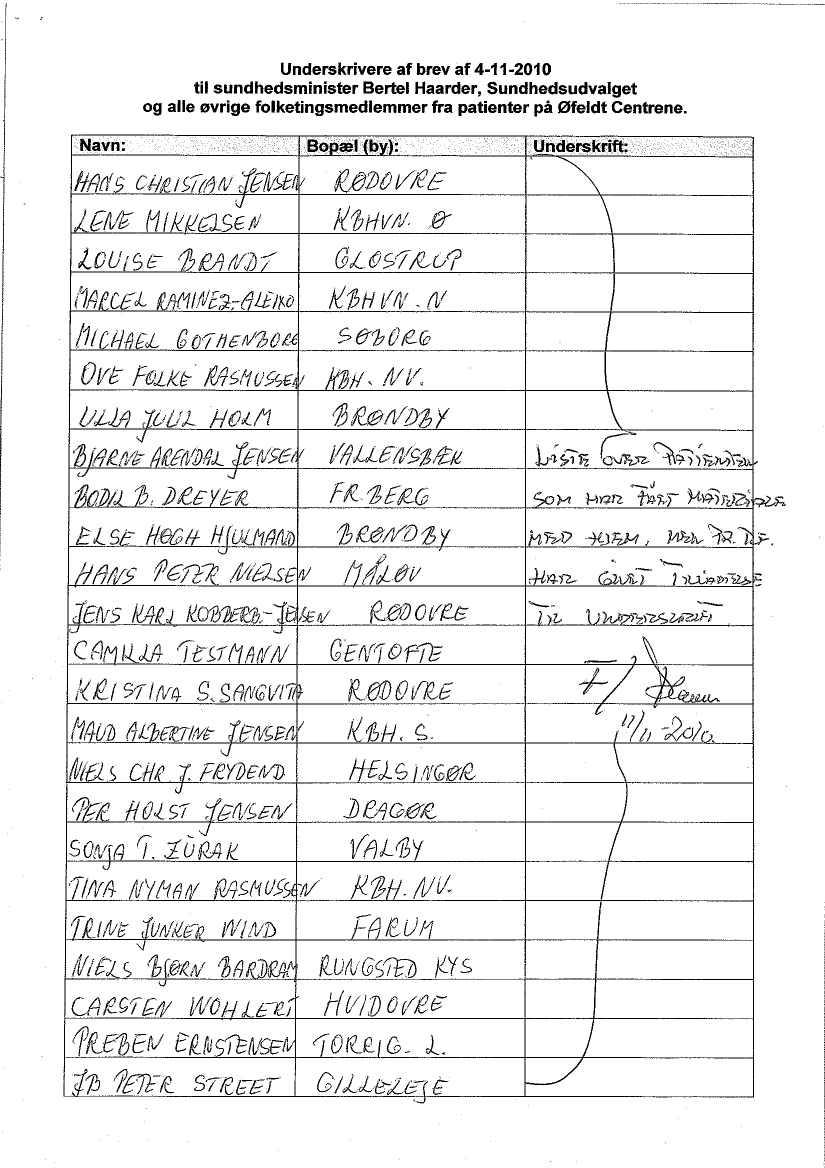 Underskrivere af brev af 4-11-2010
til sundhedsminister Bertel Haarder, Sundhedsudvalget
og alle øvrige folketingsmedlemmer fra patienter på Øfeldt Centrene.
Navn: Bopæl (by): Underskrift:
HANS CHRISTIAN JENSEN RØDOVRE
LENE MIKKELSEN KBHVN. Ø
LOUISE BRANDT GLOSTRUP
MARCEL RAMINEZ-ALEIXO KBHVN. N
MICHAEL GOTHENBORG SØBORG
OVE FOLKE RASMUSSEN KBH. NV.
ULLA JUUL HOLM BRØNDBY
BJARNE ARENDAL JENSEN VALLENSBÆK LISTE OVER PATIENTER
BODIL B. DREYER FR.BERG SOM HAR FÅET MATERIALE
ELSE HØGH HJULMAND BRØNDBY MED HJEM, MEN PR. TLF.
HANS PETER NIELSEN MÅLØV HAR GIVET TILLADELSE
JENS KARL KOBBERØ-JENSEN RØDOVRE TIL UNDERSKRIFT
CAMILLA TESTMANN GENTOFTE
KRISTINA S. SANGVITA RØDOVRE
MAUD ALBERTINE JENSEN KBH. S. 11/11-2010
NIELS CHR J. FRYDEND HELSINGØR
PER HOLST JENSEN DRAGØR
SONJA T. ZÜRAK VALBY
TINA NYMAN RASMUSSEN KBH. NV.
TRINE JUNKER WIND FARUM
NIELS BJØRN BARDRAM RUNGSTED KYS
CARSTEN WOHLERT HVIDOVRE
PREBEN ERNSTENSEN TORRIG. L.
IB PETER STREET GILLELEJE